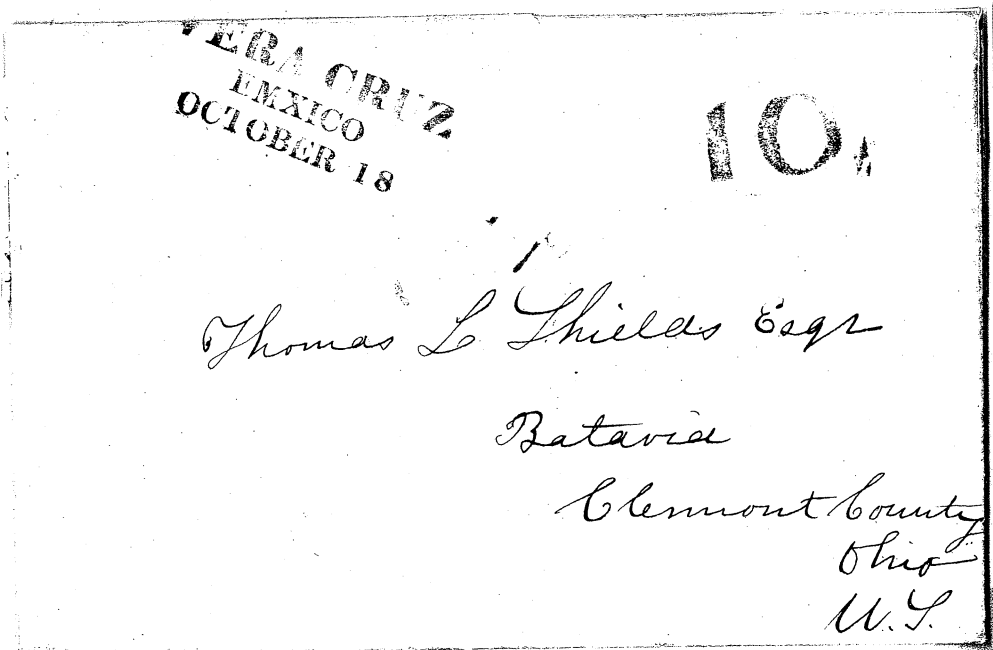 VERA CRUZ
EMXICO
OCTOBER 18
10
Thomas L Shields Esqr
Batavia
Clermont County
Ohio
U.S.